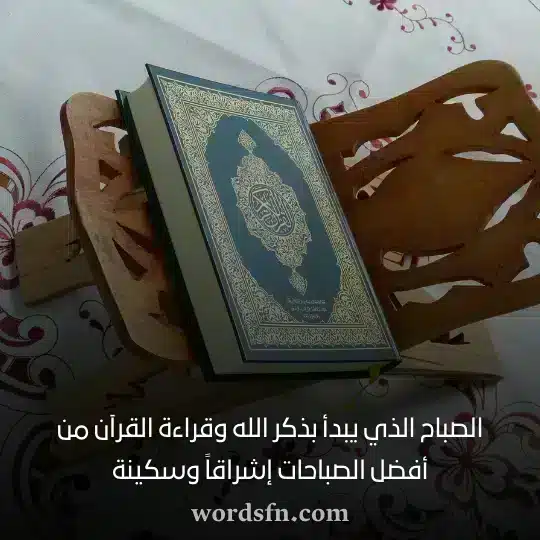 الصباح الذي يبدأ بذكر الله وقراءة القرآن من
أفضل الصباحات إشراقاً وسكينة
wordsfn.com